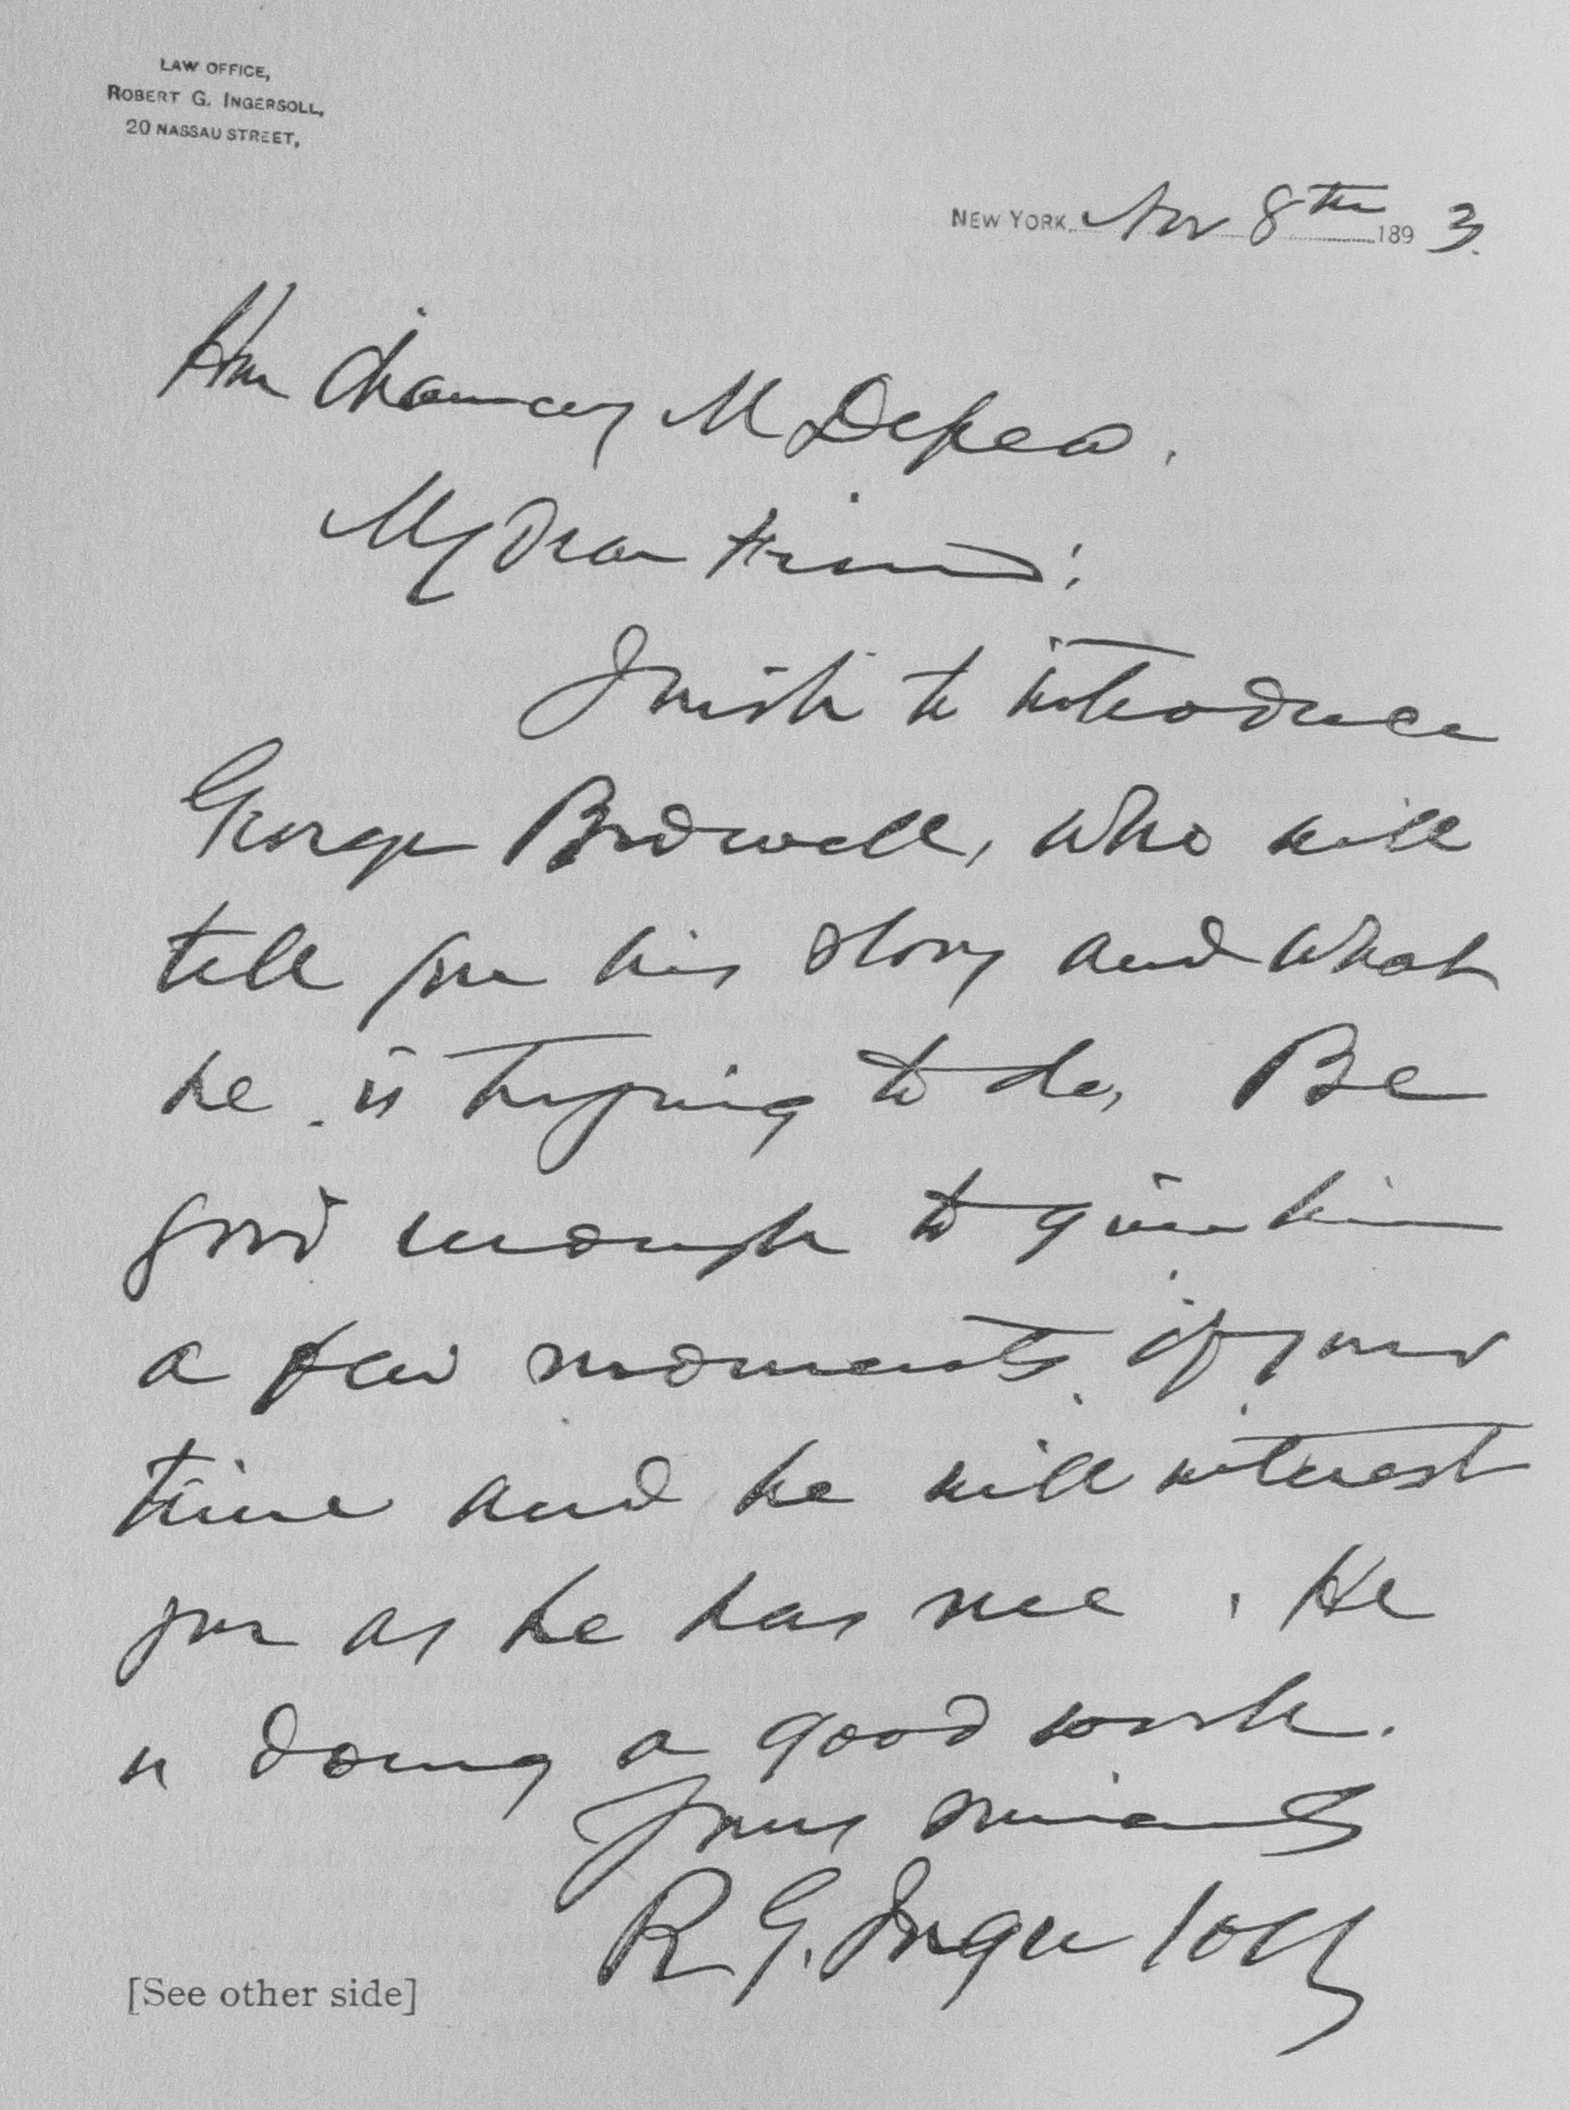 LAW OFFICE,
ROBERT G. INGERSOLL,
20 NASSAU STREET,
NEW YORK, Nov 8th 1893.
Hon Chauncey M Depew.
My Dear Friend:
I wish to introduce
George Bidwell, who will
tell you his story and what
he is trying to do, Be
good enough to give him
a few moments of your
time and he will interest
you as he has me. He
is doing a good work.
Yours sincerely
R. G. Ingersoll
[See other side]